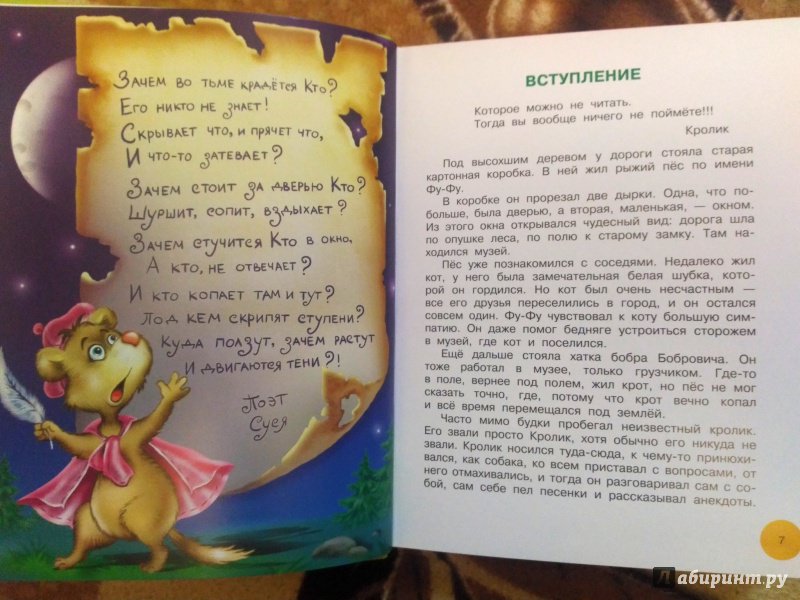 Зачем во тьме крадётся Кто?
Его никто не знает!
Скрывает что, и прячет что,
И что-то затевает?
Зачем стоит за дверью Кто?
Шуршит, сопит, вздыхает?
Зачем стучится Кто в окно,
А кто, не отвечает?
И кто копает там и тут?
Под кем скрипят ступени?
Куда ползут, зачем растут
И двигаются тени?!
Поэт
Суся
ВСТУПЛЕНИЕ
Которое можно не читать.
Тогда вы вообще ничего не поймёте!!!
Кролик
Под высохшим деревом у дороги стояла старая
картонная коробка. В ней жил рыжий пёс по имени
Фу-Фу.
В коробке он прорезал две дырки. Одна, что по-
больше, была дверью, а вторая, маленькая, — окном.
Из этого окна открывался чудесный вид: дорога шла
по опушке леса, по полю к старому замку. Там на-
ходился музей.
Пёс уже познакомился с соседями. Недалеко жил
кот, у него была замечательная белая шубка, кото-
рой он гордился. Но кот был очень несчастным —
все его друзья переселились в город, и он остался
совсем один. Фу-Фу чувствовал к коту большую сим-
патию. Он даже помог бедняге устроиться сторожем
в музей, где кот и поселился.
Ещё дальше стояла хатка бобра Бобровича. Он
тоже работал в музее, только грузчиком. Где-то
в поле, вернее под полем, жил крот, но пёс не мог
сказать точно, где, потому что крот вечно копал
и всё время перемещался под землёй.
Часто мимо будки пробегал неизвестный кролик.
Его звали просто Кролик, хотя обычно его никуда не
звали. Кролик носился туда-сюда, к чему-то принюхи-
вался, как собака, ко всем приставал с вопросами, от
него отмахивались, и тогда он разговаривал сам с со-
бой, сам себе пел песенки и рассказывал анекдоты.
7
Лабиринт.ру